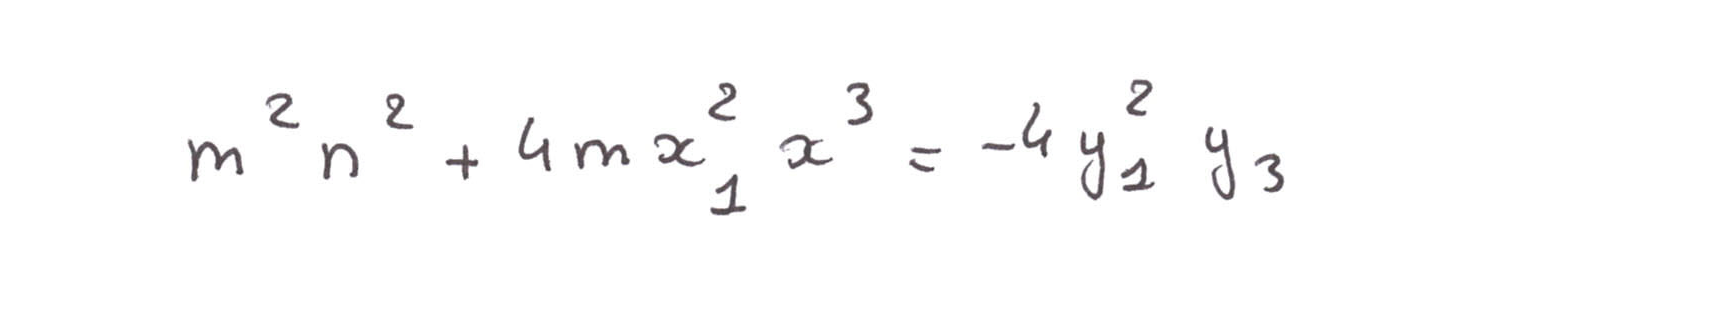 m²n² + 4mx₁²x³ = -4y₁²y₃